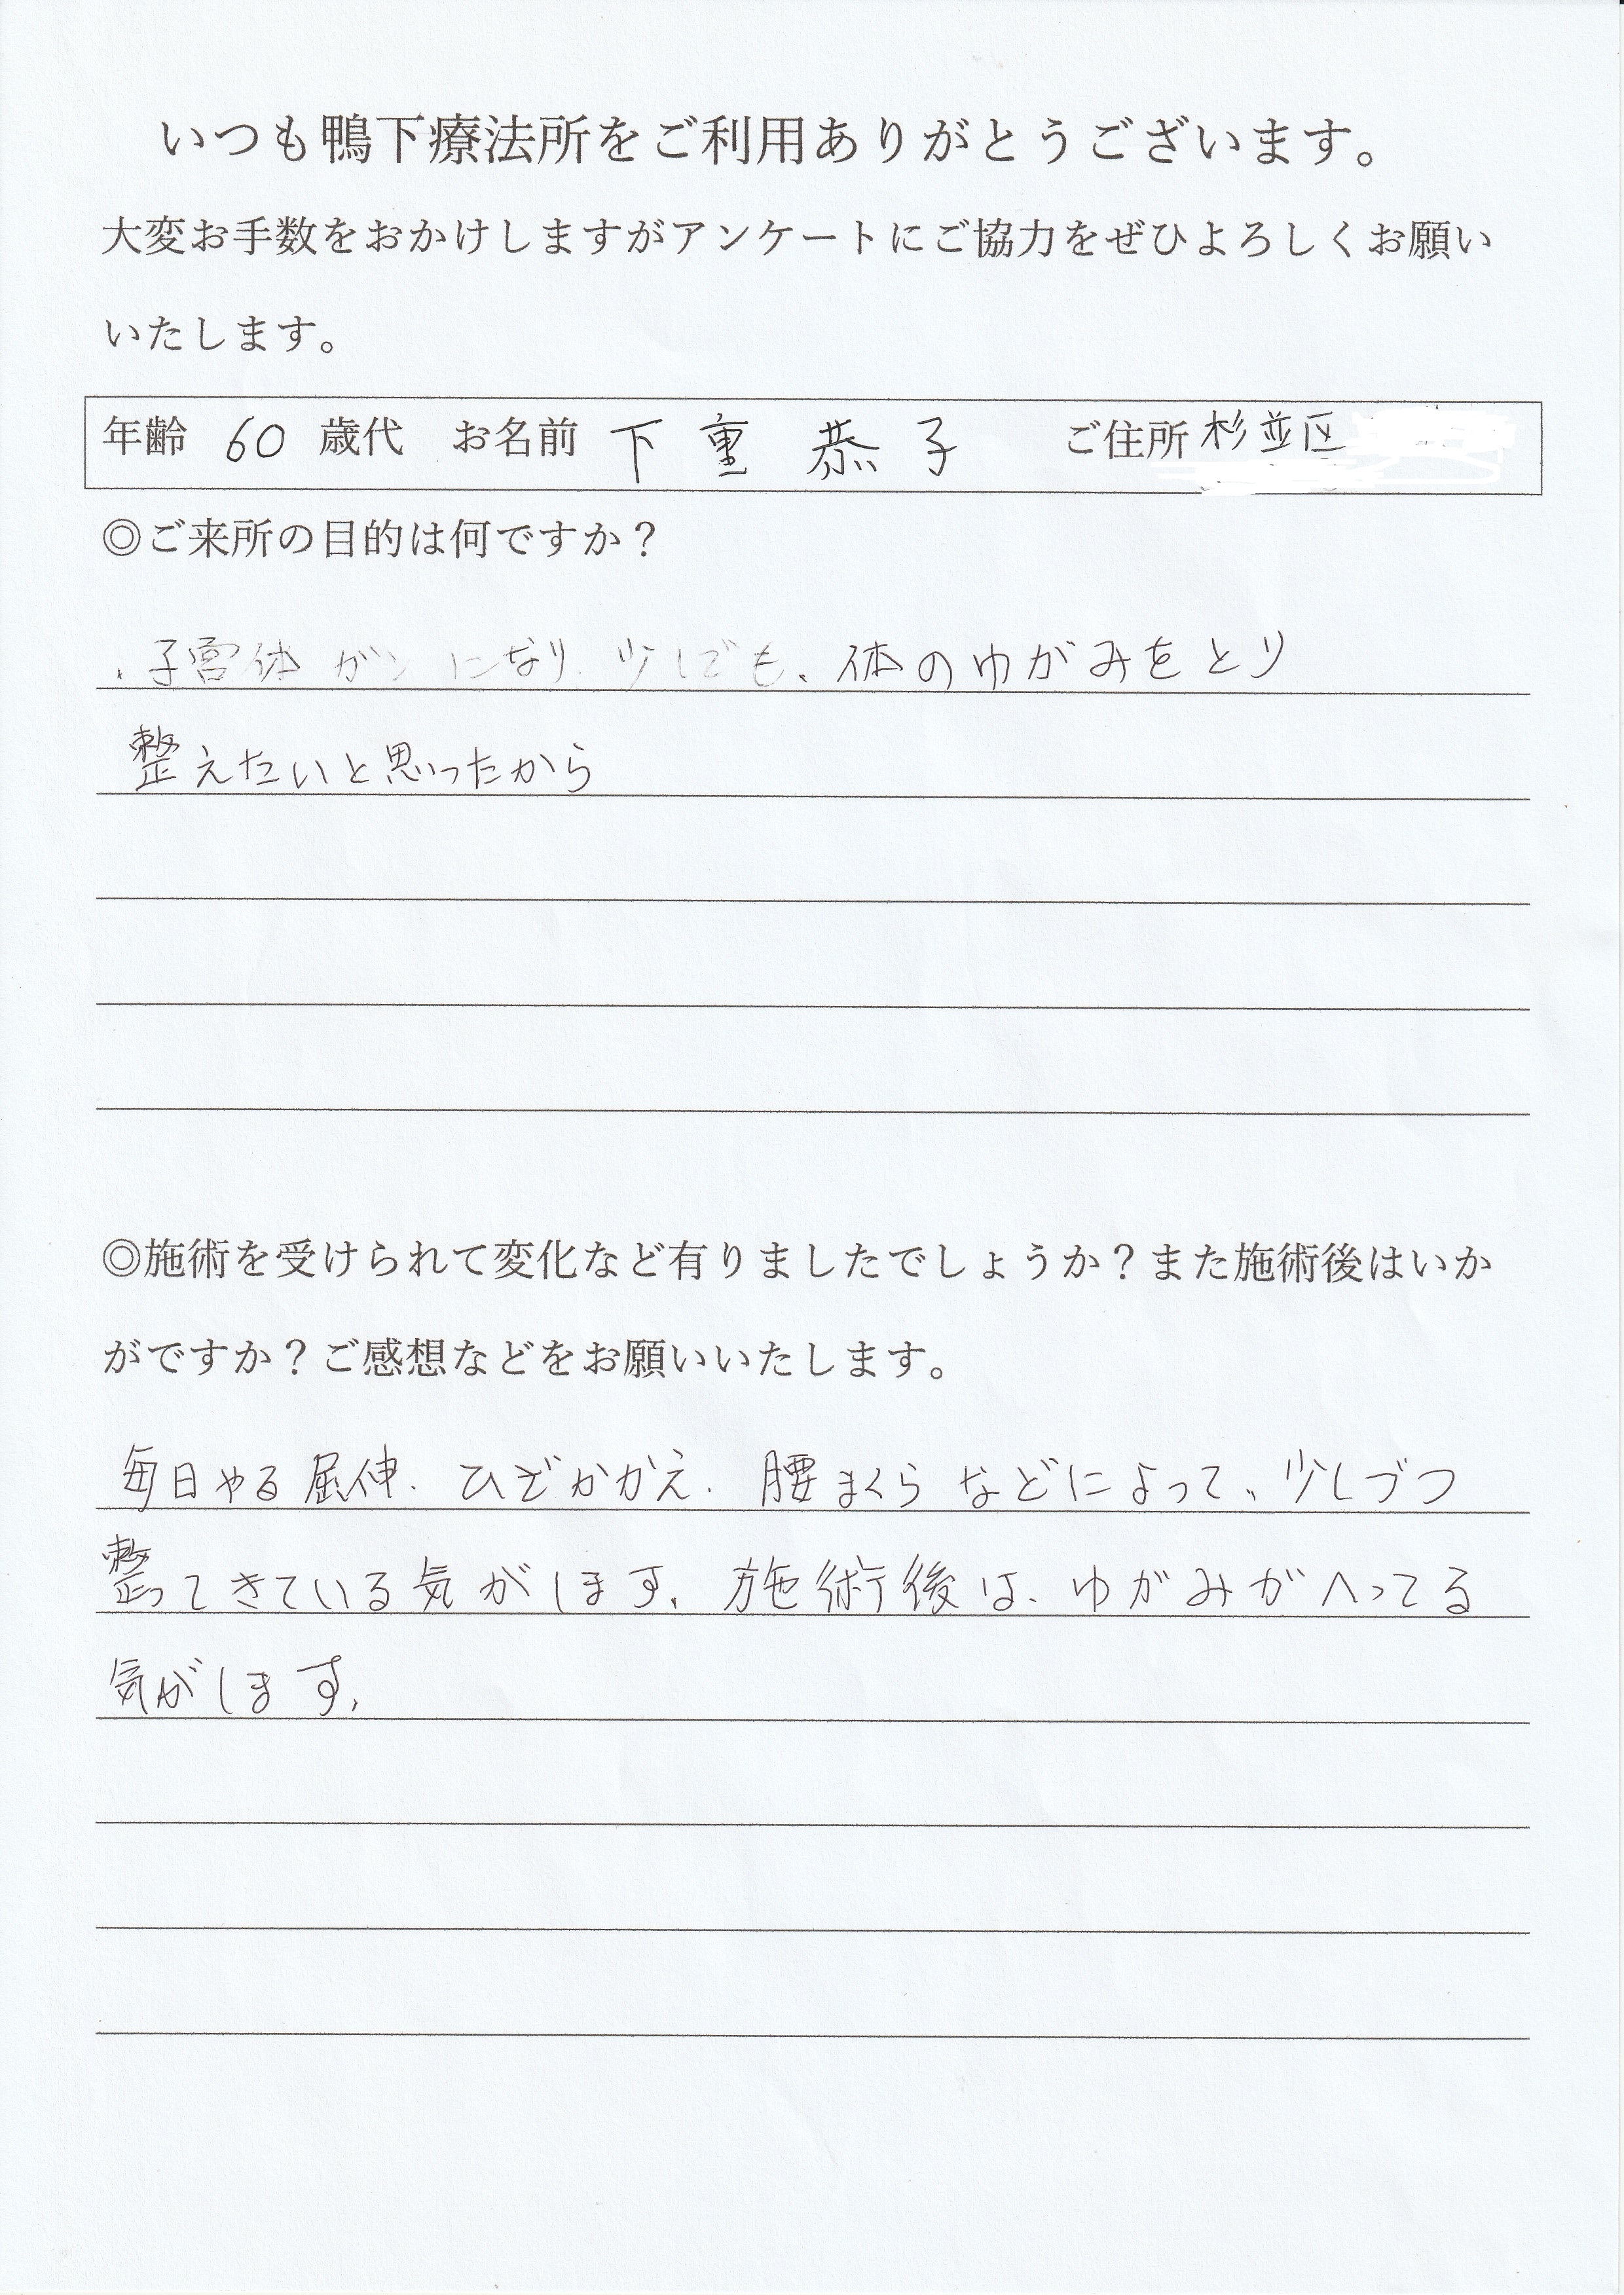 いつも鴨下療法所をご利用ありがとうございます。
大変お手数をおかけしますがアンケートにご協力をぜひよろしくお願い
いたします。
年齢 60 歳代 お名前 下重 恭子 ご住所 杉並区
◎ご来所の目的は何ですか？
、子宮体ガンになり、少しでも、体のゆがみをとり
整えたいと思ったから
◎施術を受けられて変化など有りましたでしょうか？また施術後はいか
がですか？ご感想などをお願いいたします。
毎日やる屈伸、ひざかかえ、腰まくらなどによって、少しづつ
整ってきている気がします。施術後は、ゆがみがへってる
気がします。